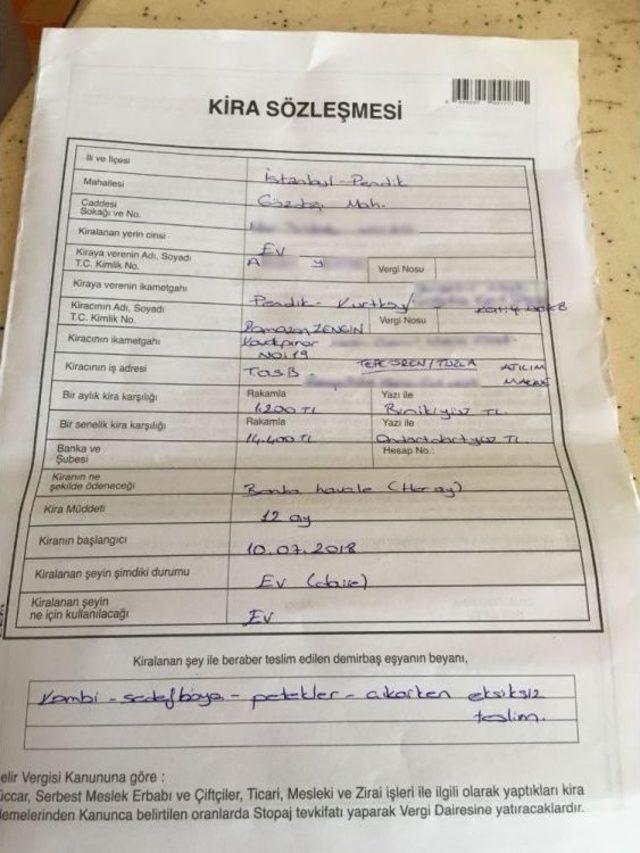 KİRA SÖZLEŞMESİ
İli ve İlçesi
İstanbul - Pendik
Mahallesi
Mah.
Caddesi
Sokağı ve No.
Kiralanan yerin cinsi
EV
Kiraya verenin Adı, Soyadı
T.C. Kimlik No.
A y
Vergi Nosu
Kiraya verenin ikametgahı
Pendik - Kurtköy
Kiracının Adı, Soyadı
T.C. Kimlik No.
Ramazan ZENGİN
Vergi Nosu
Kiracının ikametgahı
Kavakpınar
NO: 19
TEPEÖREN/TUZLA
Kiracının iş adresi
TOSB -
ATILIM
Bir aylık kira karşılığı
Rakamla
1.200 TL
Yazı ile
Binikiyüz TL.
Bir senelik kira karşılığı
Rakamla
14.400 TL
Yazı ile
Ondörtdörtyüz TL.
Banka ve
Şubesi
Hesap No.:
Kiranın ne
şekilde ödeneceği
Banka havale (Her ay)
Kira Müddeti
12 ay
Kiranın başlangıcı
10.07.2018
Kiralanan şeyin şimdiki durumu
Ev (daire)
Kiralanan şeyin
ne için kullanılacağı
Ev
Kiralanan şey ile beraber teslim edilen demirbaş eşyanın beyanı,
Kombi - - petekler - çıkarken eksiksiz
teslim.
elir Vergisi Kanununa göre :
üccar, Serbest Meslek Erbabı ve Çiftçiler, Ticari, Mesleki ve Zirai işleri ile ilgili olarak yaptıkları kira
demelerinden Kanunca belirtilen oranlarda Stopaj tevkifatı yaparak Vergi Dairesine yatıracaklardır.